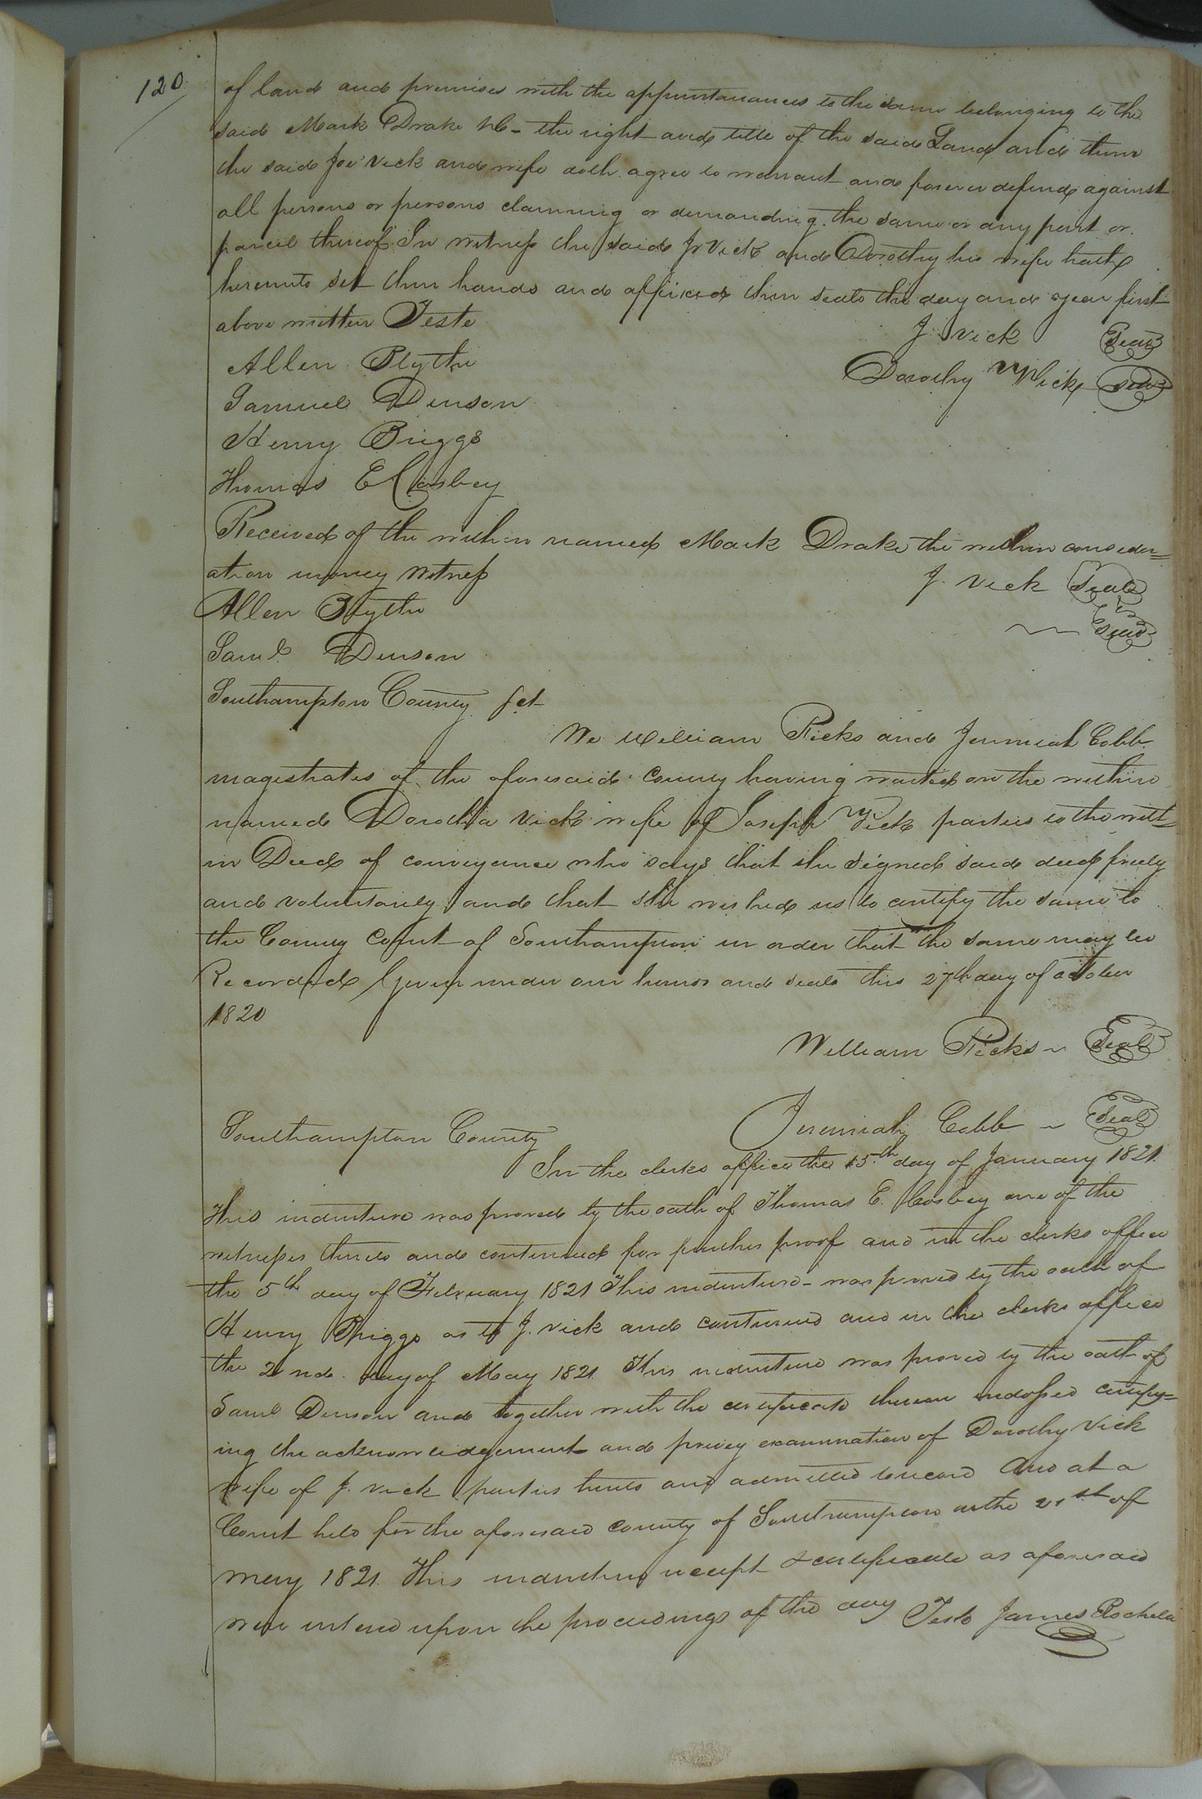 120
of land and premises with the appurtanances to the same belonging to the
said Mark Drake &c - the right and title of the said Land and them
the said Jos Vick and wife doth agree to warrant and forever defend against
all persons or persons claiming or demanding the same or any part or
parcel thereof In witness the said J Vick and Dorothy his wife hath
hereunto set their hands and affixed their seals the day and year first
above written Teste
J. Vick Seal
Allen Blythe
Dorothy Vick Seal
Samuel Denson
Henry Briggs
Thomas E Cosbey
Received of the within named Mark Drake the within consider=
ation money witness
J. Vick Seal
Allen Blythe
Seal
Saml Denson
Southampton County Sct
We William Ricks and Jeremiah Cobb
magestrates of the aforesaid County having waited on the within
named Dorotha Vick wife of Joseph Vick parties to the with=
in Deed of conveyance who says that she signed said deed freely
and voluntarily and that she wished us to certify the same to
the County Court of Southampton in order that the same may be
Recorded Given under our hands and seals this 27th day of october
1820
William Ricks ~ Seal
Jeremiah Cobb ~ Seal
Southampton County
In the clerks office the 15th day of January 1821
This indenture was proved by the oath of Thomas E. Cosbey one of the
witnesses thereto and continued for further proof and in the clerks office
the 5th day of February 1821 This indenture - was proved by the oath of
Henry Briggs as to J. Vick and continued and in the clerks office
the 2nd day of May 1821 This indenture was proved by the oath of
Saml Denson and together with the certificate thereon indossed certify=
ing the acknowledgement and privey examination of Dorothy Vick
wife of J. Vick parties hereto and admitted to record And at a
Court held for the aforesaid county of Southampton on the 21st of
may 1821 This indenture receipt & certificate as aforesaid
were entered upon the proceedings of the day Teste James Rochelle